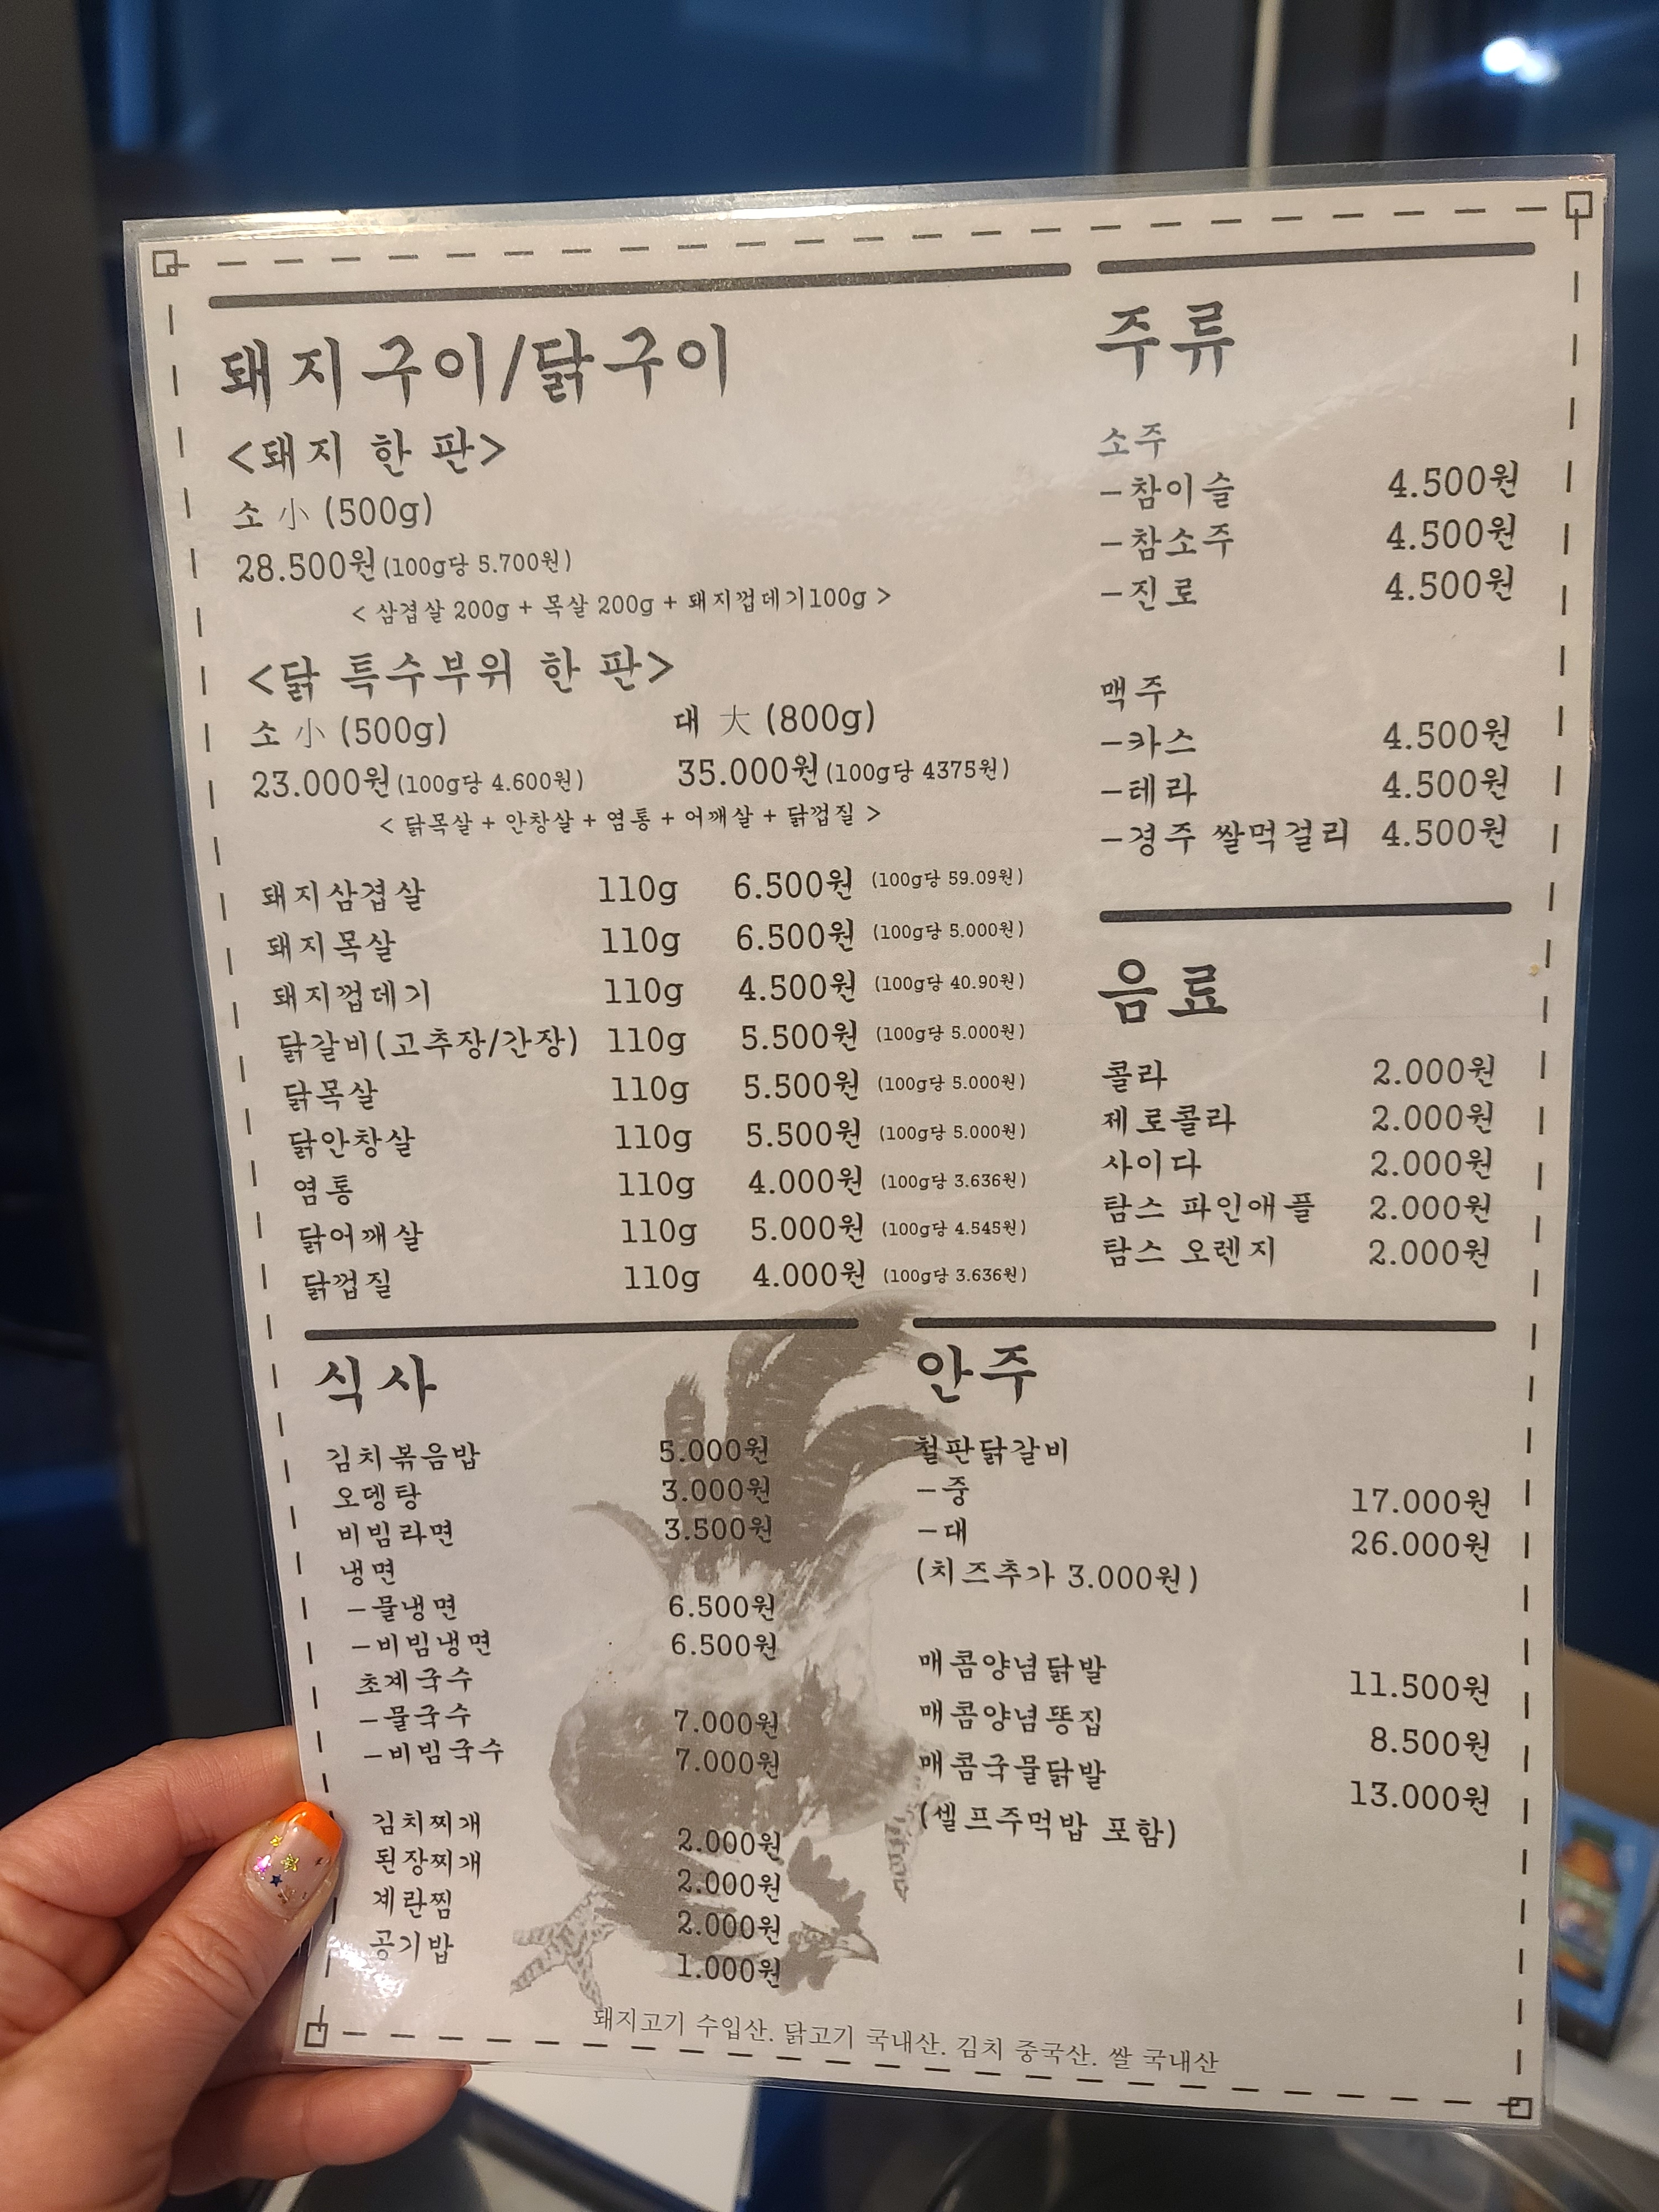 돼지구이/닭구이
<돼지 한 판>
소 小 (500g)
28.500원(100g당 5.700원)
< 삼겹살 200g + 목살 200g + 돼지껍데기100g >
<닭 특수부위 한 판>
소 小 (500g) 대 大 (800g)
23.000원(100g당 4.600원) 35.000원(100g당 4375원)
< 닭목살 + 안창살 + 염통 + 어깨살 + 닭껍질 >
돼지삼겹살 110g 6.500원 (100g당 59.09원)
돼지목살 110g 6.500원 (100g당 5.000원)
돼지껍데기 110g 4.500원 (100g당 40.90원)
닭갈비(고추장/간장) 110g 5.500원 (100g당 5.000원)
닭목살 110g 5.500원 (100g당 5.000원)
닭안창살 110g 5.500원 (100g당 5.000원)
염통 110g 4.000원 (100g당 3.636원)
닭어깨살 110g 5.000원 (100g당 4.545원)
닭껍질 110g 4.000원 (100g당 3.636원)
주류
소주
-참이슬 4.500원
-참소주 4.500원
-진로 4.500원
맥주
-카스 4.500원
-테라 4.500원
-경주 쌀먹걸리 4.500원
음료
콜라 2.000원
제로콜라 2.000원
사이다 2.000원
탐스 파인애플 2.000원
탐스 오렌지 2.000원
식사
김치볶음밥 5.000원
오뎅탕 3.000원
비빔라면 3.500원
냉면
-물냉면 6.500원
-비빔냉면 6.500원
초계국수
-물국수 7.000원
-비빔국수 7.000원
김치찌개 2.000원
된장찌개 2.000원
계란찜 2.000원
공기밥 1.000원
안주
철판닭갈비
-중 17.000원
-대 26.000원
(치즈추가 3.000원)
매콤양념닭발 11.500원
매콤양념똥집 8.500원
매콤국물닭발 13.000원
(셀프주먹밥 포함)
돼지고기 수입산. 닭고기 국내산. 김치 중국산. 쌀 국내산